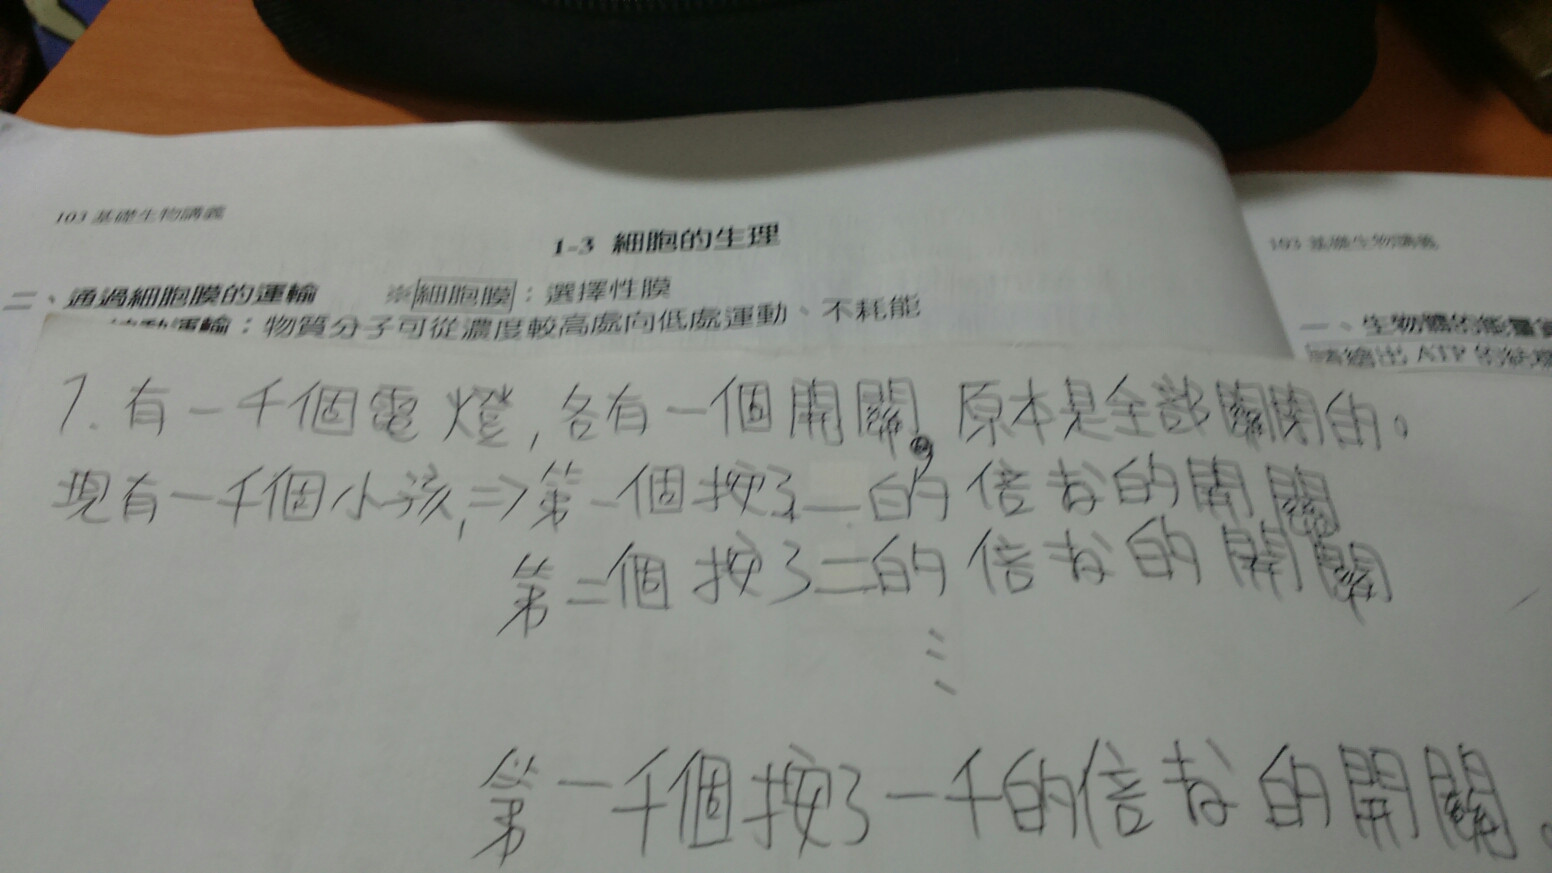 103 基礎生物講義
1-3 細胞的生理
二、通過細胞膜的運輸 ※細胞膜：選擇性膜
運輸：物質分子可從濃度較高處向低處運動、不耗能
103 基礎生物講義
一、生物體的能量
請繪出 ATP 的結構
7. 有一千個電燈,各有一個開關,原本是全部關閉的。
現有一千個小孩,⇒第一個按了一的倍數的開關
第二個按了二的倍數的開關
⋮
第一千個按了一千的倍數的開關。